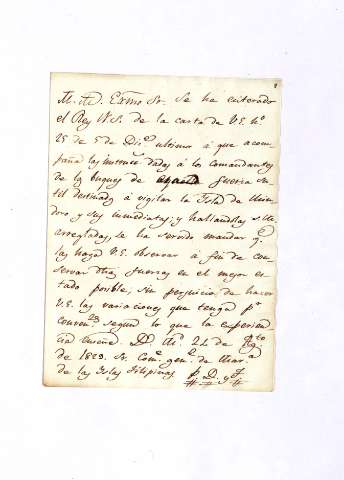 M. A. Exmo Sr. Se ha enterado
el Rey N.S. de la carta de V.E. nº
25 de 5 de Dicᵉ ultimo á que acom-
paña las instrucˢ dadas á los comandantes
de los buques de guerra su-
til destinados a vigilar la Isla de Min-
doro y sus inmediatas; y hallandolas S.M.
arregladas, se ha servido mandar qᵉ
las haga V.E. observar á fin de con-
servar dhas fuerzas en el mejor es-
tado posible, sin perjuicio de hacer
V.E. las variaciones que tenga pʳ
convenᵗᵉˢ segun lo que la experien-
cia enseñe. Dˢ. Mᵈ. 24 de Agᵗᵒ
de 1829. Sr. Comᵗᵉ genˡ de Marᵃ
de las Islas Filipinas. P. D. y F.